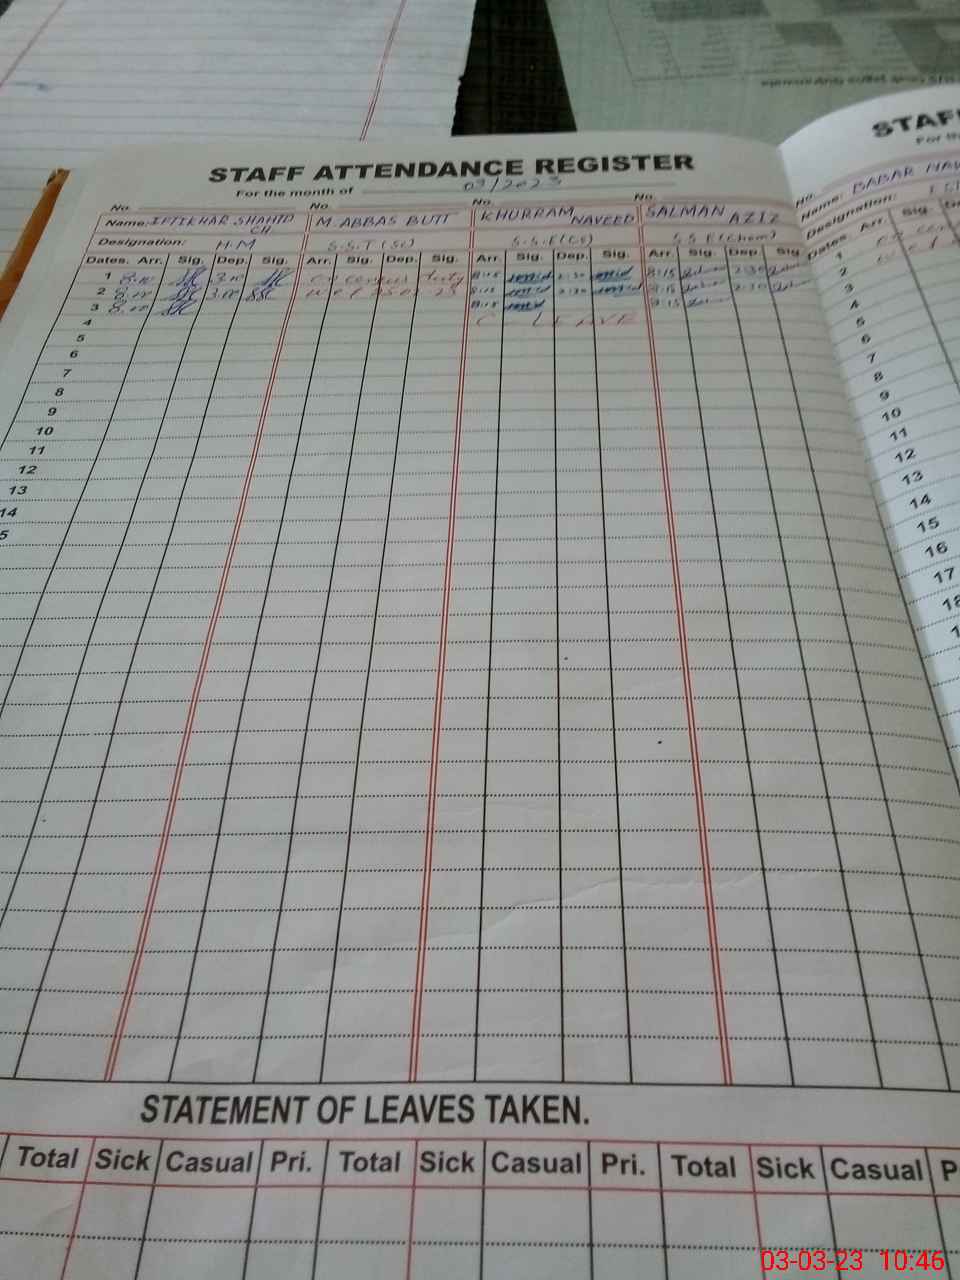 STAFF ATTENDANCE REGISTER
For the month of 03/2023
No. No. No. No.
Name: IFTIKHAR SHAHID CH M. ABBAS BUTT KHURRAM NAVEED SALMAN AZIZ
Designation: H.M S.S.T (Sc) S.S.E (CS) S.S.E (Chem)
Dates. Arr. Sig. Dep. Sig. Arr. Sig. Dep. Sig. Arr. Sig. Dep. Sig. Arr. Sig. Dep. Sig.
1 8.00 3.00 on census duty 8:15 2:30 8:15 2:30
2 8.00 3.00 w.e.f 23 8:15 2:30 8:15 2:30
3 8.00 8:15 8:15
4 C - LEAVE
5
6
7
8
9
10
11
12
13
14
5
STATEMENT OF LEAVES TAKEN.
Total Sick Casual Pri. Total Sick Casual Pri. Total Sick Casual P
STAF
For the
No.
Name: BABAR NAV
Designation:
Dates Arr. Sig.
1
2
3
4
5
6
7
8
9
10
11
12
13
14
15
16
17
18
1
03-03-23 10:46